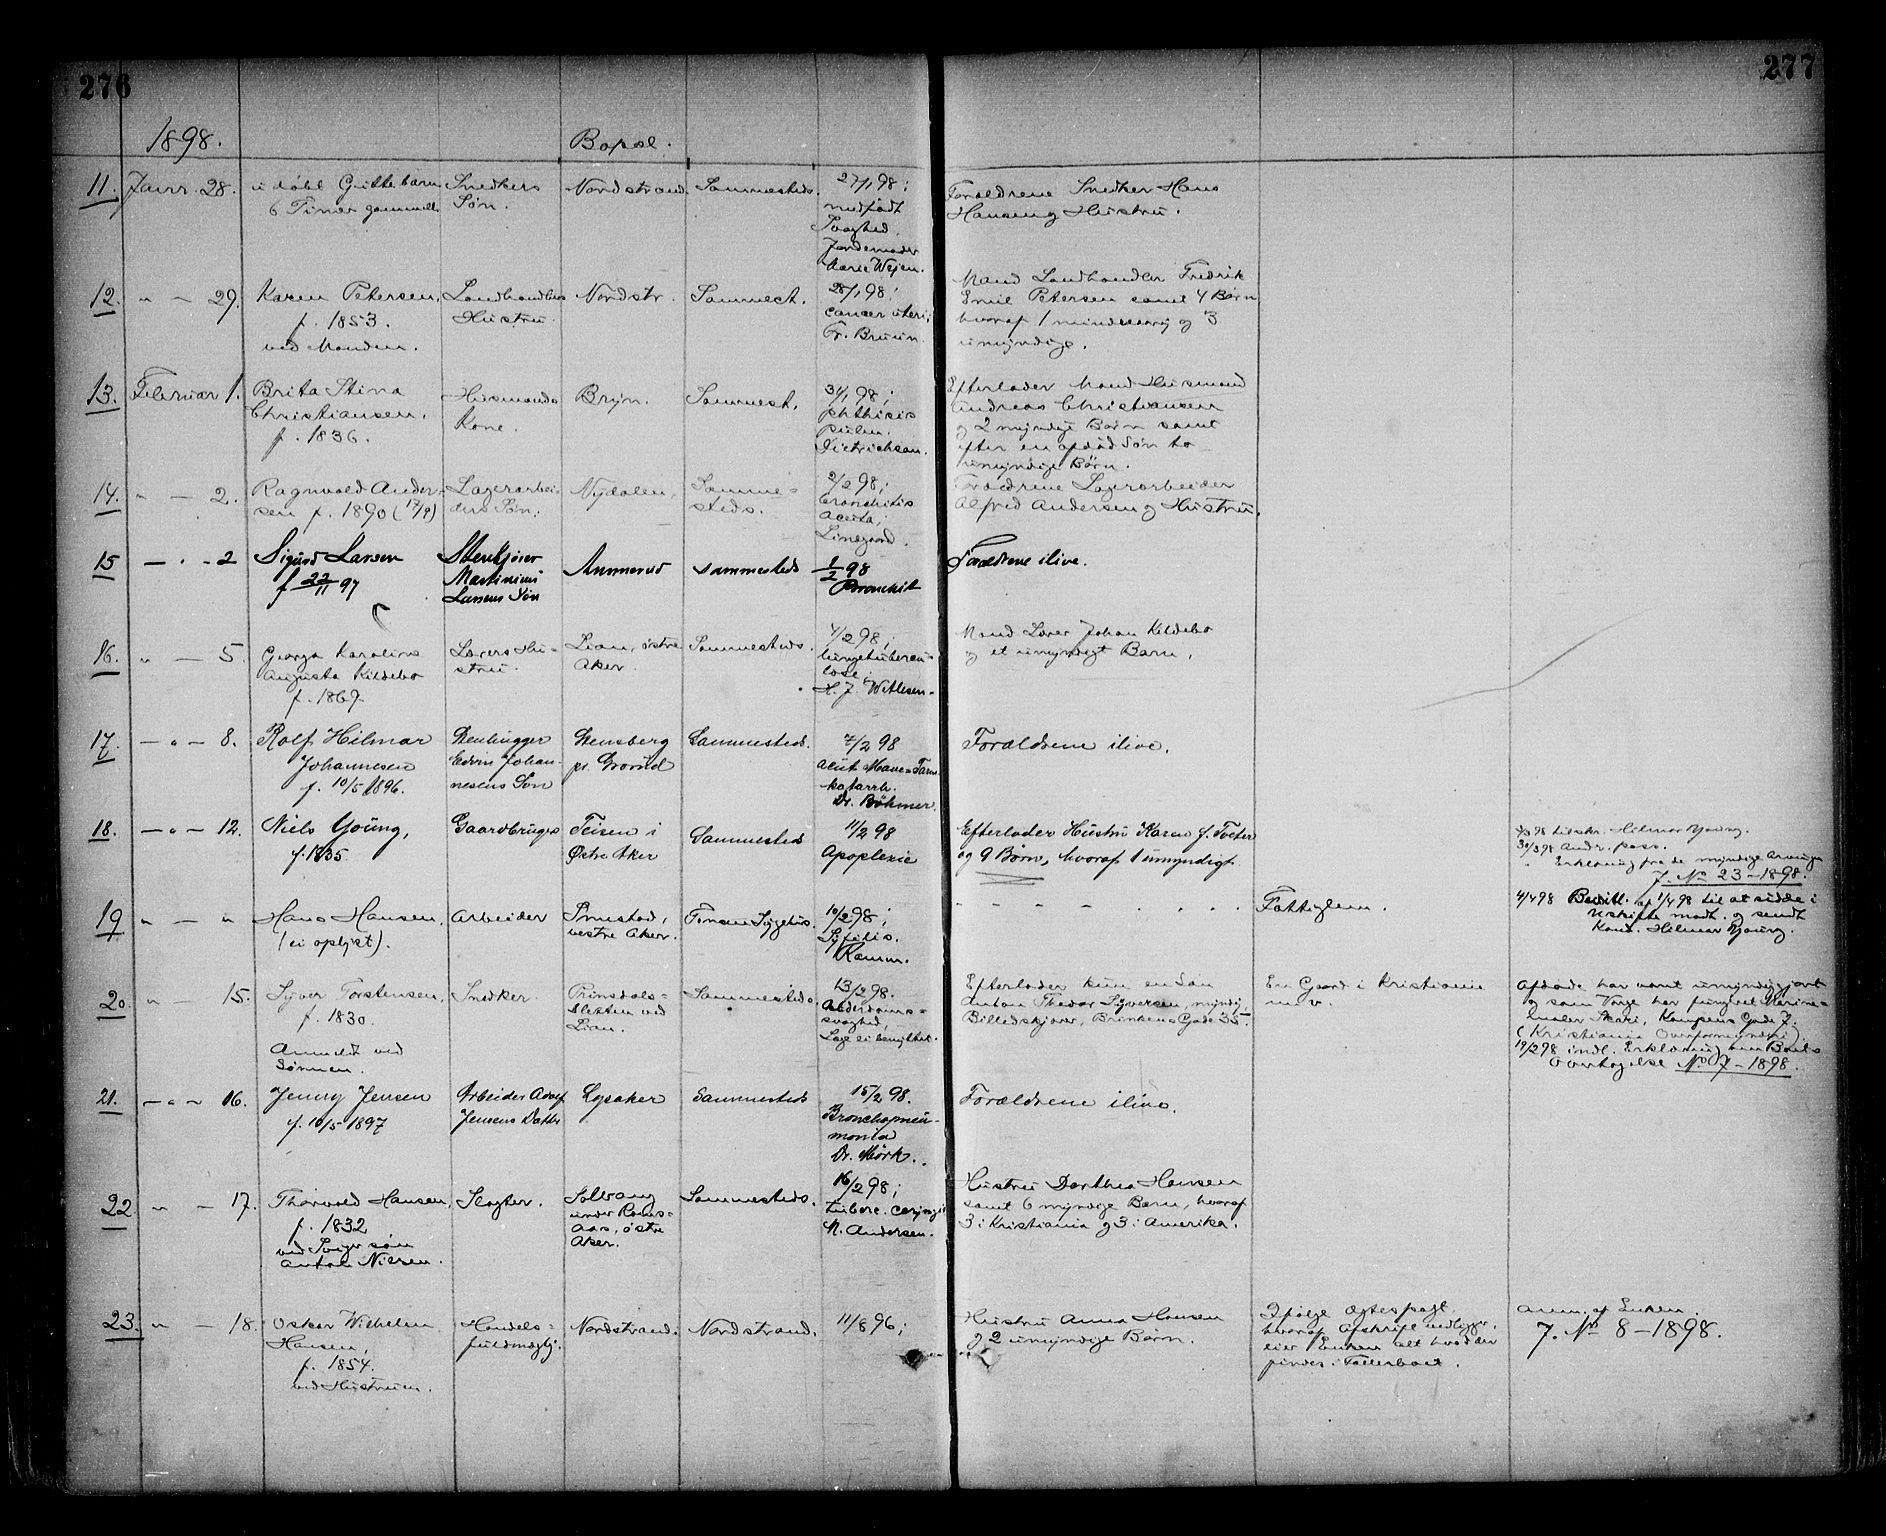 276
277
1898.
Bopæl.
11. Janr. 28. udøbt Guttebarn
6 Timer gammelt
Snedkers
Søn.
Nordstrand
Sammesteds.
27/1 98;
medfødt
Svaghed.
Jordemoder
Marie Wejen.
Forældrene Snedker Hans
Hansen og Hustru.
12. " — 29. Karen Petersen,
f. 1853.
ved Manden.
Landhandlers
Hustru.
Nordstr.
Sammest.
28/1 98;
cancer uteri;
Fr. Bruun.
Mand Landhandler Fredrik
Emil Petersen samt 4 Børn
hvoraf 1 mindreaarig og 3
umyndige.
13. Februar 1. Brita Stina
Christiansen.
f. 1836.
Husmands
Kone.
Bryn.
Sammest.
31/1 98;
phthisis
pulm.
Dietrichson.
Efterlader Mand Husmand
Andreas Christiansen
og 2 myndige Børn samt
efter en afdød Søn to
umyndige Børn.
14. " — 2. Ragnvald Ander-
sen f. 1890 (17/9)
Lagerarbei-
ders Søn.
Nydalen.
Samme-
steds.
2/2 98;
bronchitis
acuta,
Linegard.
Forældrene Lagerarbeider
Alfred Andersen og Hustru.
15 — " - 2 Sigurd Larsen
f 22/11 97
Stenkjører
Martinius
Larsens Søn
Ammerud
sammesteds
1/2 98
Bronchit
Forældrene ilive.
16. " — 5. Georga Karoline
Augusta Kildebo
f. 1869
Lærers Hu-
stru.
Lian, østre
Aker.
Sammesteds.
4/2 98;
lungetubercu-
lose;
H. J. Vetlesen.
Mand Lærer Johan Kildebo
og et umyndigt Barn.
17. — " — 8. Rolf Hilmar
Johannesen
f. 10/5 1896.
Stenhugger
Edvin Johan-
nesens Søn
Stensberg
pr. Grorud
Sammesteds.
7/2 98
Acut Mave-Tarm-
katarrh.
Dr. Bøhmer.
Forældrene ilive.
18. — " — 12. Niels Young,
f. 1835.
Gaardbruger
Teisen i
Østre Aker
Sammesteds
11/2 98
Apoplexie
Efterlader Hustru Karen f. Tveter
og 9 Børn, hvoraf 1 umyndigt.
98 tilskr. Hilmar Young.
30/3 98 Andr. pass.
" Erklæring fra de myndige Arvinger
J. No 23-1898.
4/4 98 Bevill. af 1/4 98 til at sidde i
Uskifte modt. og sendt
Kand. Hilmar Young.
19 " — " Hans Hansen,
(ei oplyst).
Arbeider
Smestad,
vestre Aker.
Tonsen Sygehus.
10/2 98;
Syfilis.
Ramm.
Fattiglem.
20. " — 15. Syver Torstensen,
f. 1830.
Anmeldt ved
Sønnen.
Snedker.
Prinsdals-
sletten ved
Lian.
Sammesteds.
13/2 98.
Alderdoms-
svaghed,
Læge ei benyttet.
Efterlader kun en Søn
Anton Thedor Syversen, myndig,
Billedskjærer, Brinkens Gade 35.
En Gaard i Kristiania
m. v.
Afdøde har været umyndiggjort
og som Værge har fungeret Marine-
maler Skari, Kampens Gade 7.
(Kristiania Overformynderi)
19/2 98 indl. Erklæring om Boets
Overtagelse No 7-1898.
21. — " — 16. Jenny Jensen
f. 10/5 1897
Arbeider Adolf
Jensens Datter
Lysaker
Sammesteds
15/2 98.
Bronchopneu-
monia
Dr. Mørk.
Forældrene ilive.
22 " — 17. Thorvald Hansen,
f. 1832
ved Svigersøn
Anton Nilsen.
Slagter.
Solvang
under Raas-
aas, østre
Aker.
Sammesteds.
16/2 98;
tuberc.
N. Andersen.
Hustru Dorthea Hansen
samt 6 myndige Børn, hvoraf
3 i Kristiania og 3 i Amerika.
23. " — 18. Oskar Wilhelm
Hansen,
f. 1854.
ved Hustruen.
Handels-
fuldmægtig.
Nordstrand.
Nordstrand.
11/8 96;
Hustru Anna Hansen
og 2 umyndige Børn.
Ifølge Ægtespagt,
hvoraf Afskrift vedligger,
eier Enken alt hvad der
findes i Fællesboet.
Anm. af Enken.
J. No 8-1898.